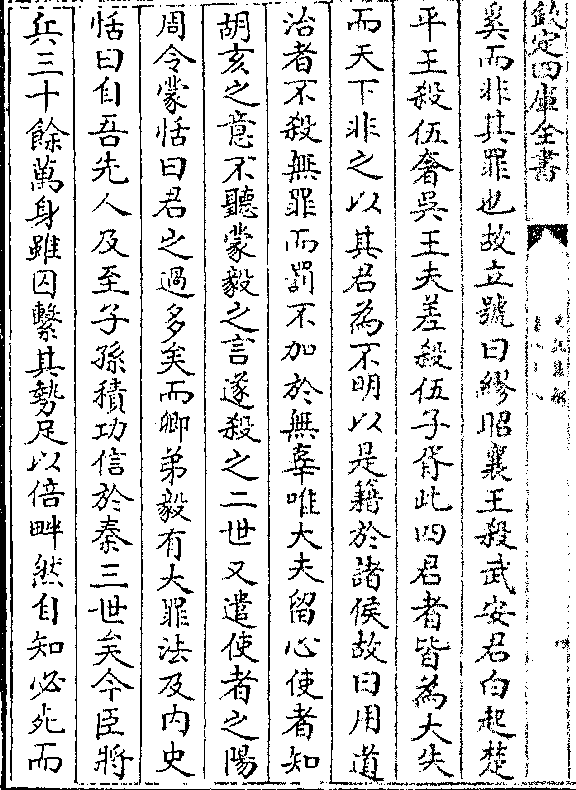 欽定四庫全書
奚而非其罪也故立號曰繆昭襄王殺武安君白起楚
平王殺伍奢吳王夫差殺伍子胥此四君者皆為大失
而天下非之以其君為不明以是籍於諸侯故曰用道
治者不殺無罪而罰不加於無辜唯大夫留心使者知
胡亥之意不聽蒙毅之言遂殺之二世又遣使者之陽
周令蒙恬曰君之過多矣而卿弟毅有大罪法及内史
恬曰自吾先人及至子孫積功信於秦三世矣今臣將
兵三十餘萬身雖囚繫其勢足以倍畔然自知必死而